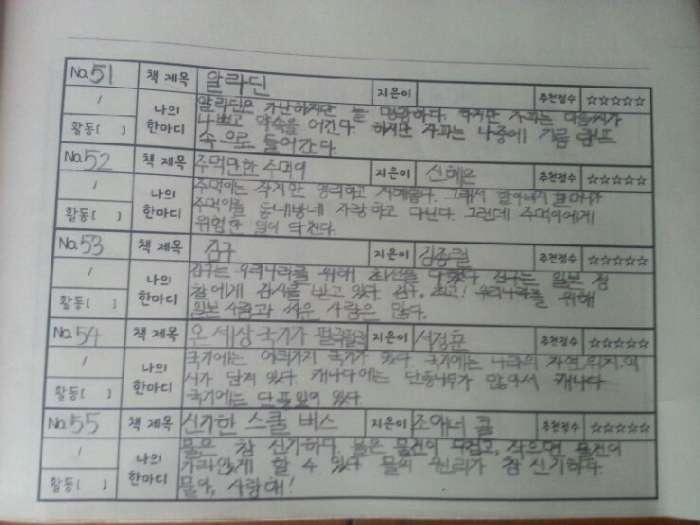 No.51 책 제목 알라딘 지은이 추천점수 ☆☆☆☆☆
/ 나의 한마디 알라딘은 가난하지만 늘 하지만 자파는 마음씨가
활동( ) 나쁘고 약속을 어긴다. 하지만 자파는 나중에 기름 램프
속으로 들어간다.
No.52 책 제목 주먹만한 주먹이 지은이 신혜은 추천점수 ☆☆☆☆☆
/ 나의 한마디 주먹이는 작지만 영리하고 지혜롭다. 그래서
활동( ) 주먹이를 동네방네 자랑하고 다닌다. 그런데 주먹이에게
위험한 일이 닥친다.
No.53 책 제목 김구 지은이 김종렬 추천점수 ☆☆☆☆☆
/ 나의 한마디 김구는 우리나라를 위해 최선을 다했다. 김구는 일본 경
활동( ) 찰에게 감시를 받고 있다. 김구, 최고! 우리나라를 위해
일본 사람과 싸운 사람은 많다.
No.54 책 제목 온 세상 국기가 펄럭펄럭 지은이 서정훈 추천점수 ☆☆☆☆☆
/ 나의 한마디 국기에는 여러가지 국기가 있다. 국기에는 나라의 자연, 위치, 역
활동( ) 사가 담겨 있다. 캐나다에는 단풍나무가 많아서 캐나다
국기에는 단풍잎이 있다.
No.55 책 제목 신기한 스쿨 버스 지은이 조애너 콜 추천점수 ☆☆☆☆☆
/ 나의 한마디 물은 참 신기하다. 물은 물건이 무겁고, 작으면 물건이
활동( ) 가라앉게 할 수 있다. 물의 원리가 참 신기하다.
물아, 사랑해!